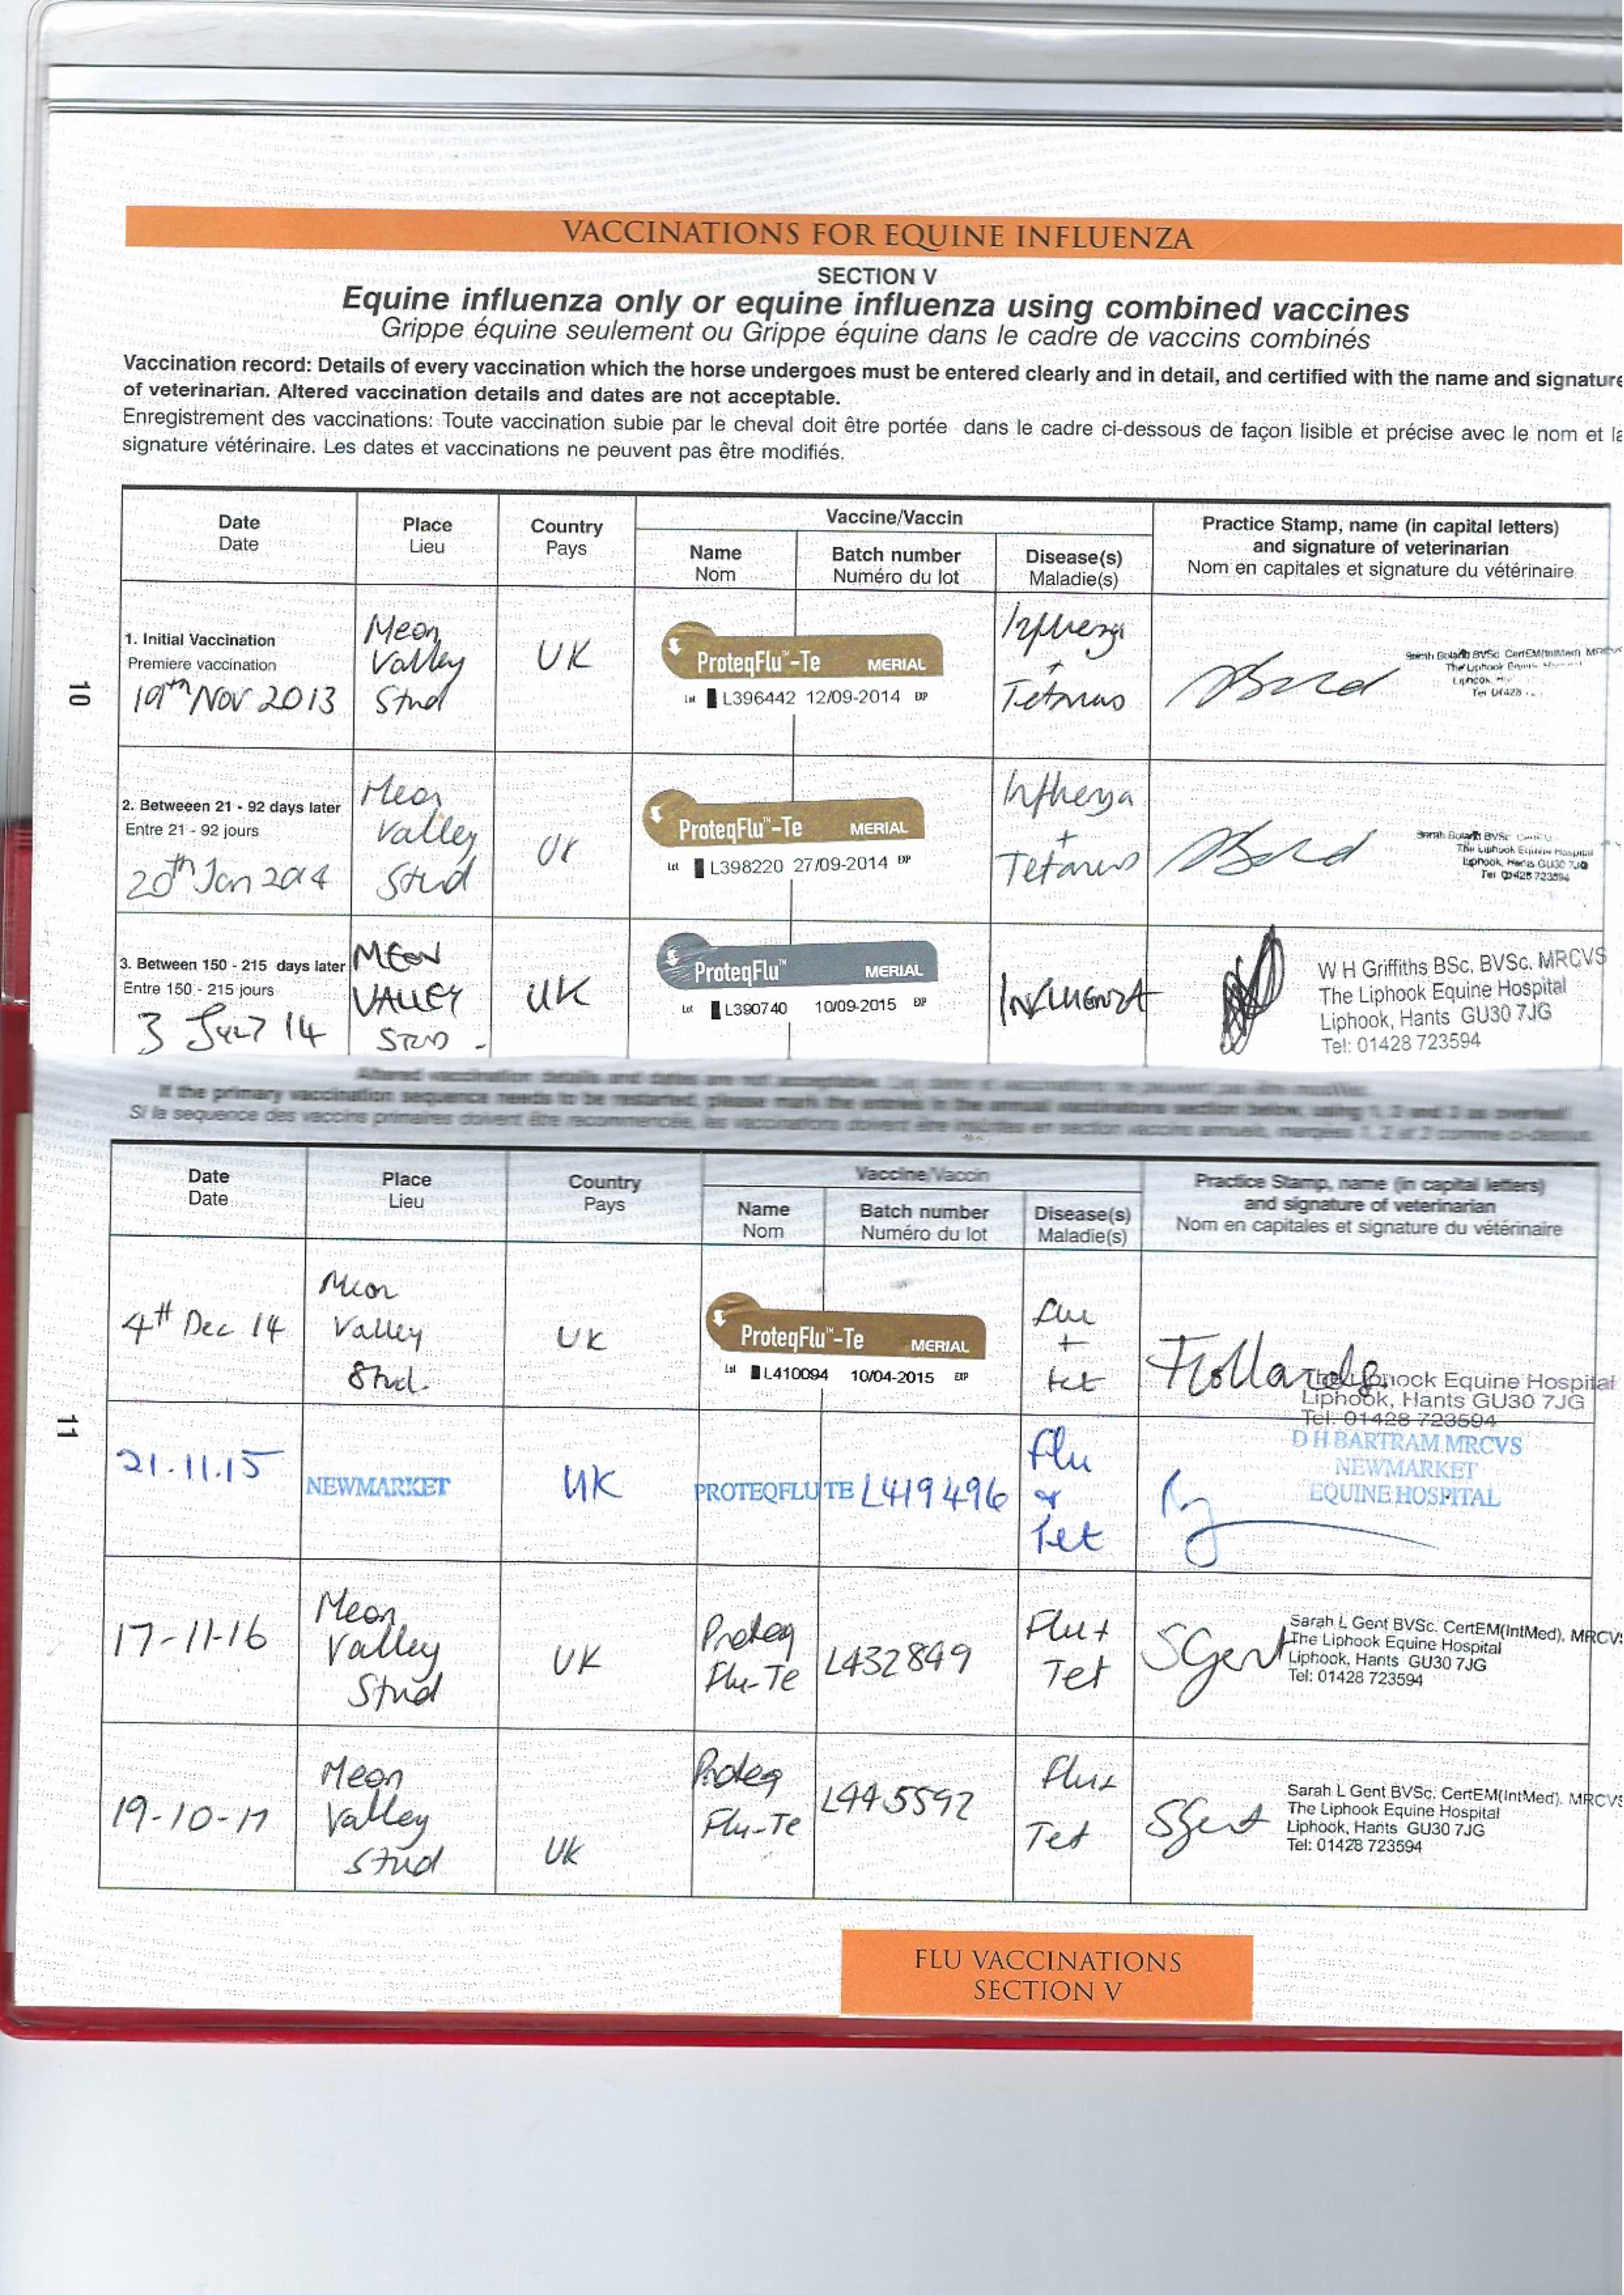 VACCINATIONS FOR EQUINE INFLUENZA
SECTION V
Equine influenza only or equine influenza using combined vaccines
Grippe équine seulement ou Grippe équine dans le cadre de vaccins combinés
Vaccination record: Details of every vaccination which the horse undergoes must be entered clearly and in detail, and certified with the name and signature
of veterinarian. Altered vaccination details and dates are not acceptable.
Enregistrement des vaccinations: Toute vaccination subie par le cheval doit être portée dans le cadre ci-dessous de façon lisible et précise avec le nom et la
signature vétérinaire. Les dates et vaccinations ne peuvent pas être modifiés.
Date
Date
Place
Lieu
Country
Pays
Vaccine/Vaccin
Name
Nom
Batch number
Numéro du lot
Disease(s)
Maladie(s)
Practice Stamp, name (in capital letters)
and signature of veterinarian
Nom en capitales et signature du vétérinaire
1. Initial Vaccination
Premiere vaccination
19th Nov 2013
Meon
Valley
Stud
UK
ProteqFlu™-Te MERIAL
Lot L396442 12/09/2014 EXP
Influenza
+
Tetanus
The Liphook Equine
Liphook,
Tel 01428
10
2. Betweeen 21 - 92 days later
Entre 21 - 92 jours
20th Jan 2014
Meon
Valley
Stud
UK
ProteqFlu™-Te MERIAL
Lot L398220 27/09/2014 EXP
Influenza
+
Tetanus
The Liphook Equine Hospital
Liphook, Hants GU30 7JG
Tel 01428 723594
3. Between 150 - 215 days later
Entre 150 - 215 jours
3 July 14
MEON
VALLEY
STUD -
UK
ProteqFlu™ MERIAL
Lot L390740 10/09/2015 EXP
INFLUENZA
W H Griffiths BSc, BVSc, MRCVS
The Liphook Equine Hospital
Liphook, Hants GU30 7JG
Tel: 01428 723594
Altered vaccination details and dates are not acceptable.
If the primary vaccination sequence needs to be restarted, please mark the entries in the annual vaccinations section below, using 1, 2 and 3 as overleaf
Si la sequence des vaccins primaires doivent être recommencée, les vaccinations doivent être
Date
Date
Place
Lieu
Country
Pays
Vaccine/Vaccin
Name
Nom
Batch number
Numéro du lot
Disease(s)
Maladie(s)
Practice Stamp, name (in capital letters)
and signature of veterinarian
Nom en capitales et signature du vétérinaire
4th Dec 14
Meon
Valley
Stud.
UK
ProteqFlu™-Te MERIAL
Lot L410094 10/04/2015 EXP
flu
+
tet
The Liphook Equine Hospital
Liphook, Hants GU30 7JG
Tel: 01428 723594
11
21.11.15
NEWMARKET
UK
PROTEQFLU TE
L419496
Flu
&
Tet
D H BARTRAM MRCVS
NEWMARKET
EQUINE HOSPITAL
17-11-16
Meon
Valley
Stud
UK
Proteq
Flu-Te
L432849
Flu +
Tet
SGent
Sarah L Gent BVSc. CertEM(IntMed), MRCVS
The Liphook Equine Hospital
Liphook, Hants GU30 7JG
Tel: 01428 723594
19-10-17
Meon
Valley
Stud
UK
Proteq
Flu-Te
L445592
Flu +
Tet
SGent
Sarah L Gent BVSc. CertEM(IntMed), MRCVS
The Liphook Equine Hospital
Liphook, Hants GU30 7JG
Tel: 01428 723594
FLU VACCINATIONS
SECTION V